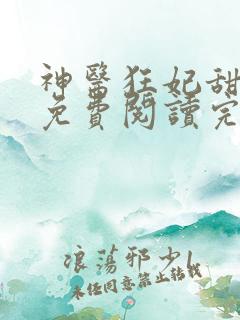 神醫狂妃甜
免費閱讀完
浪蕩邪少1
未任同意禁止轉載